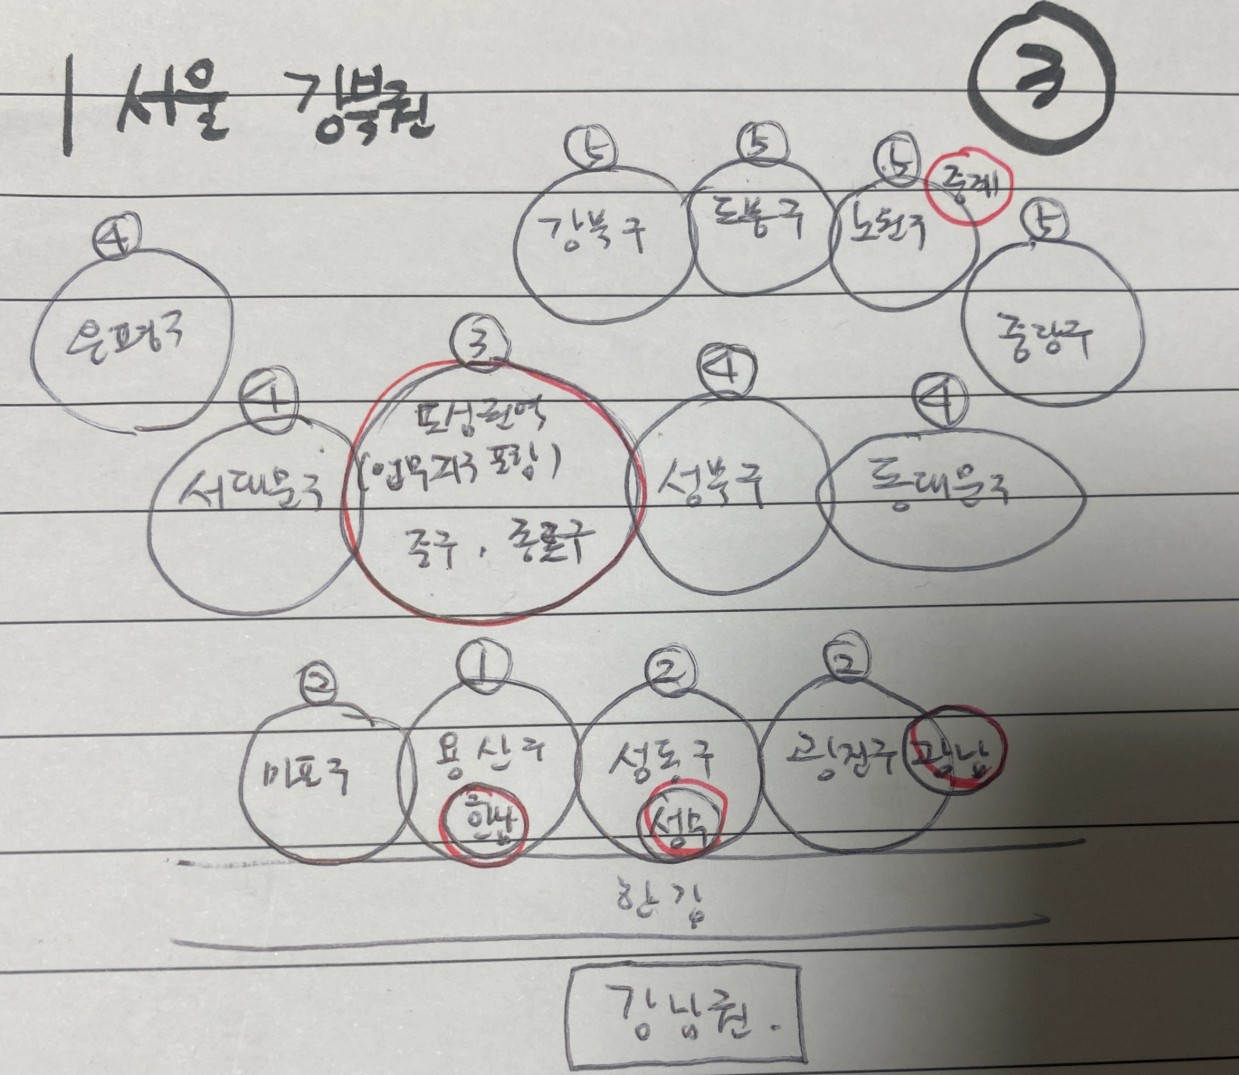 서울 강북권
③
⑤ ⑤ ⑤ 중계
강북구 도봉구 노원구
④ ⑤
은평구 중랑구
③
④ ④ ④
도심권역
(업무지구 포함)
서대문구 성북구 동대문구
중구, 종로구
② ① ② ②
마포구 용산구 성동구 광진구 광남
한남 성수
한강
강남권.